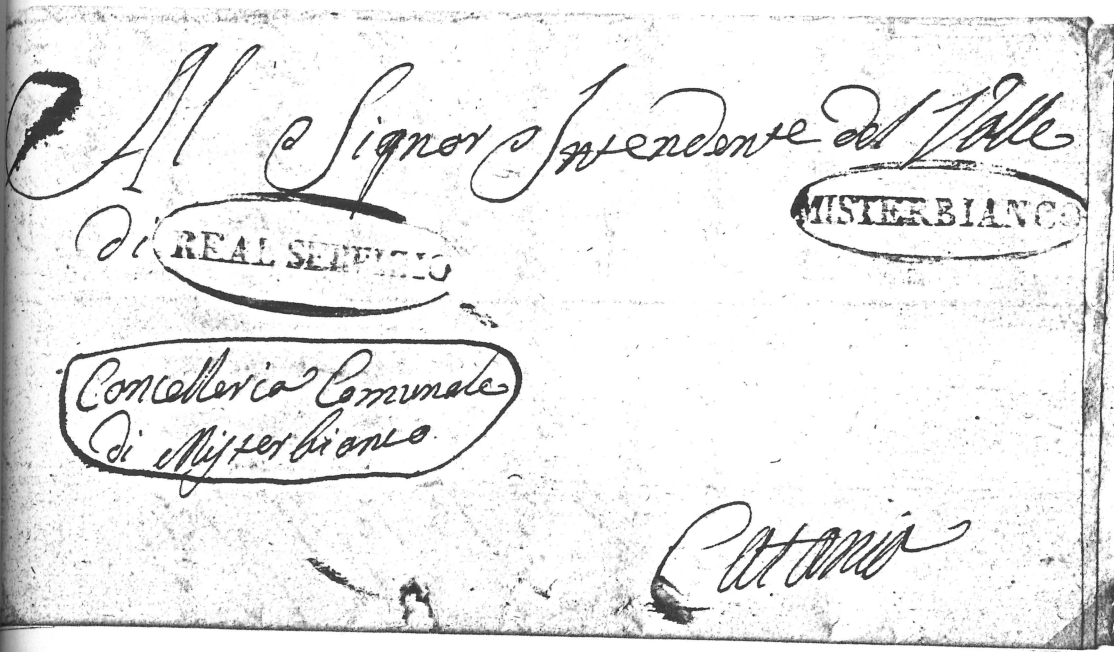 Al Signor Intendente del Valle
MISTERBIANCO
di
REAL SERVIZIO
Cancelleria Comunale
di Misterbianco
Catania